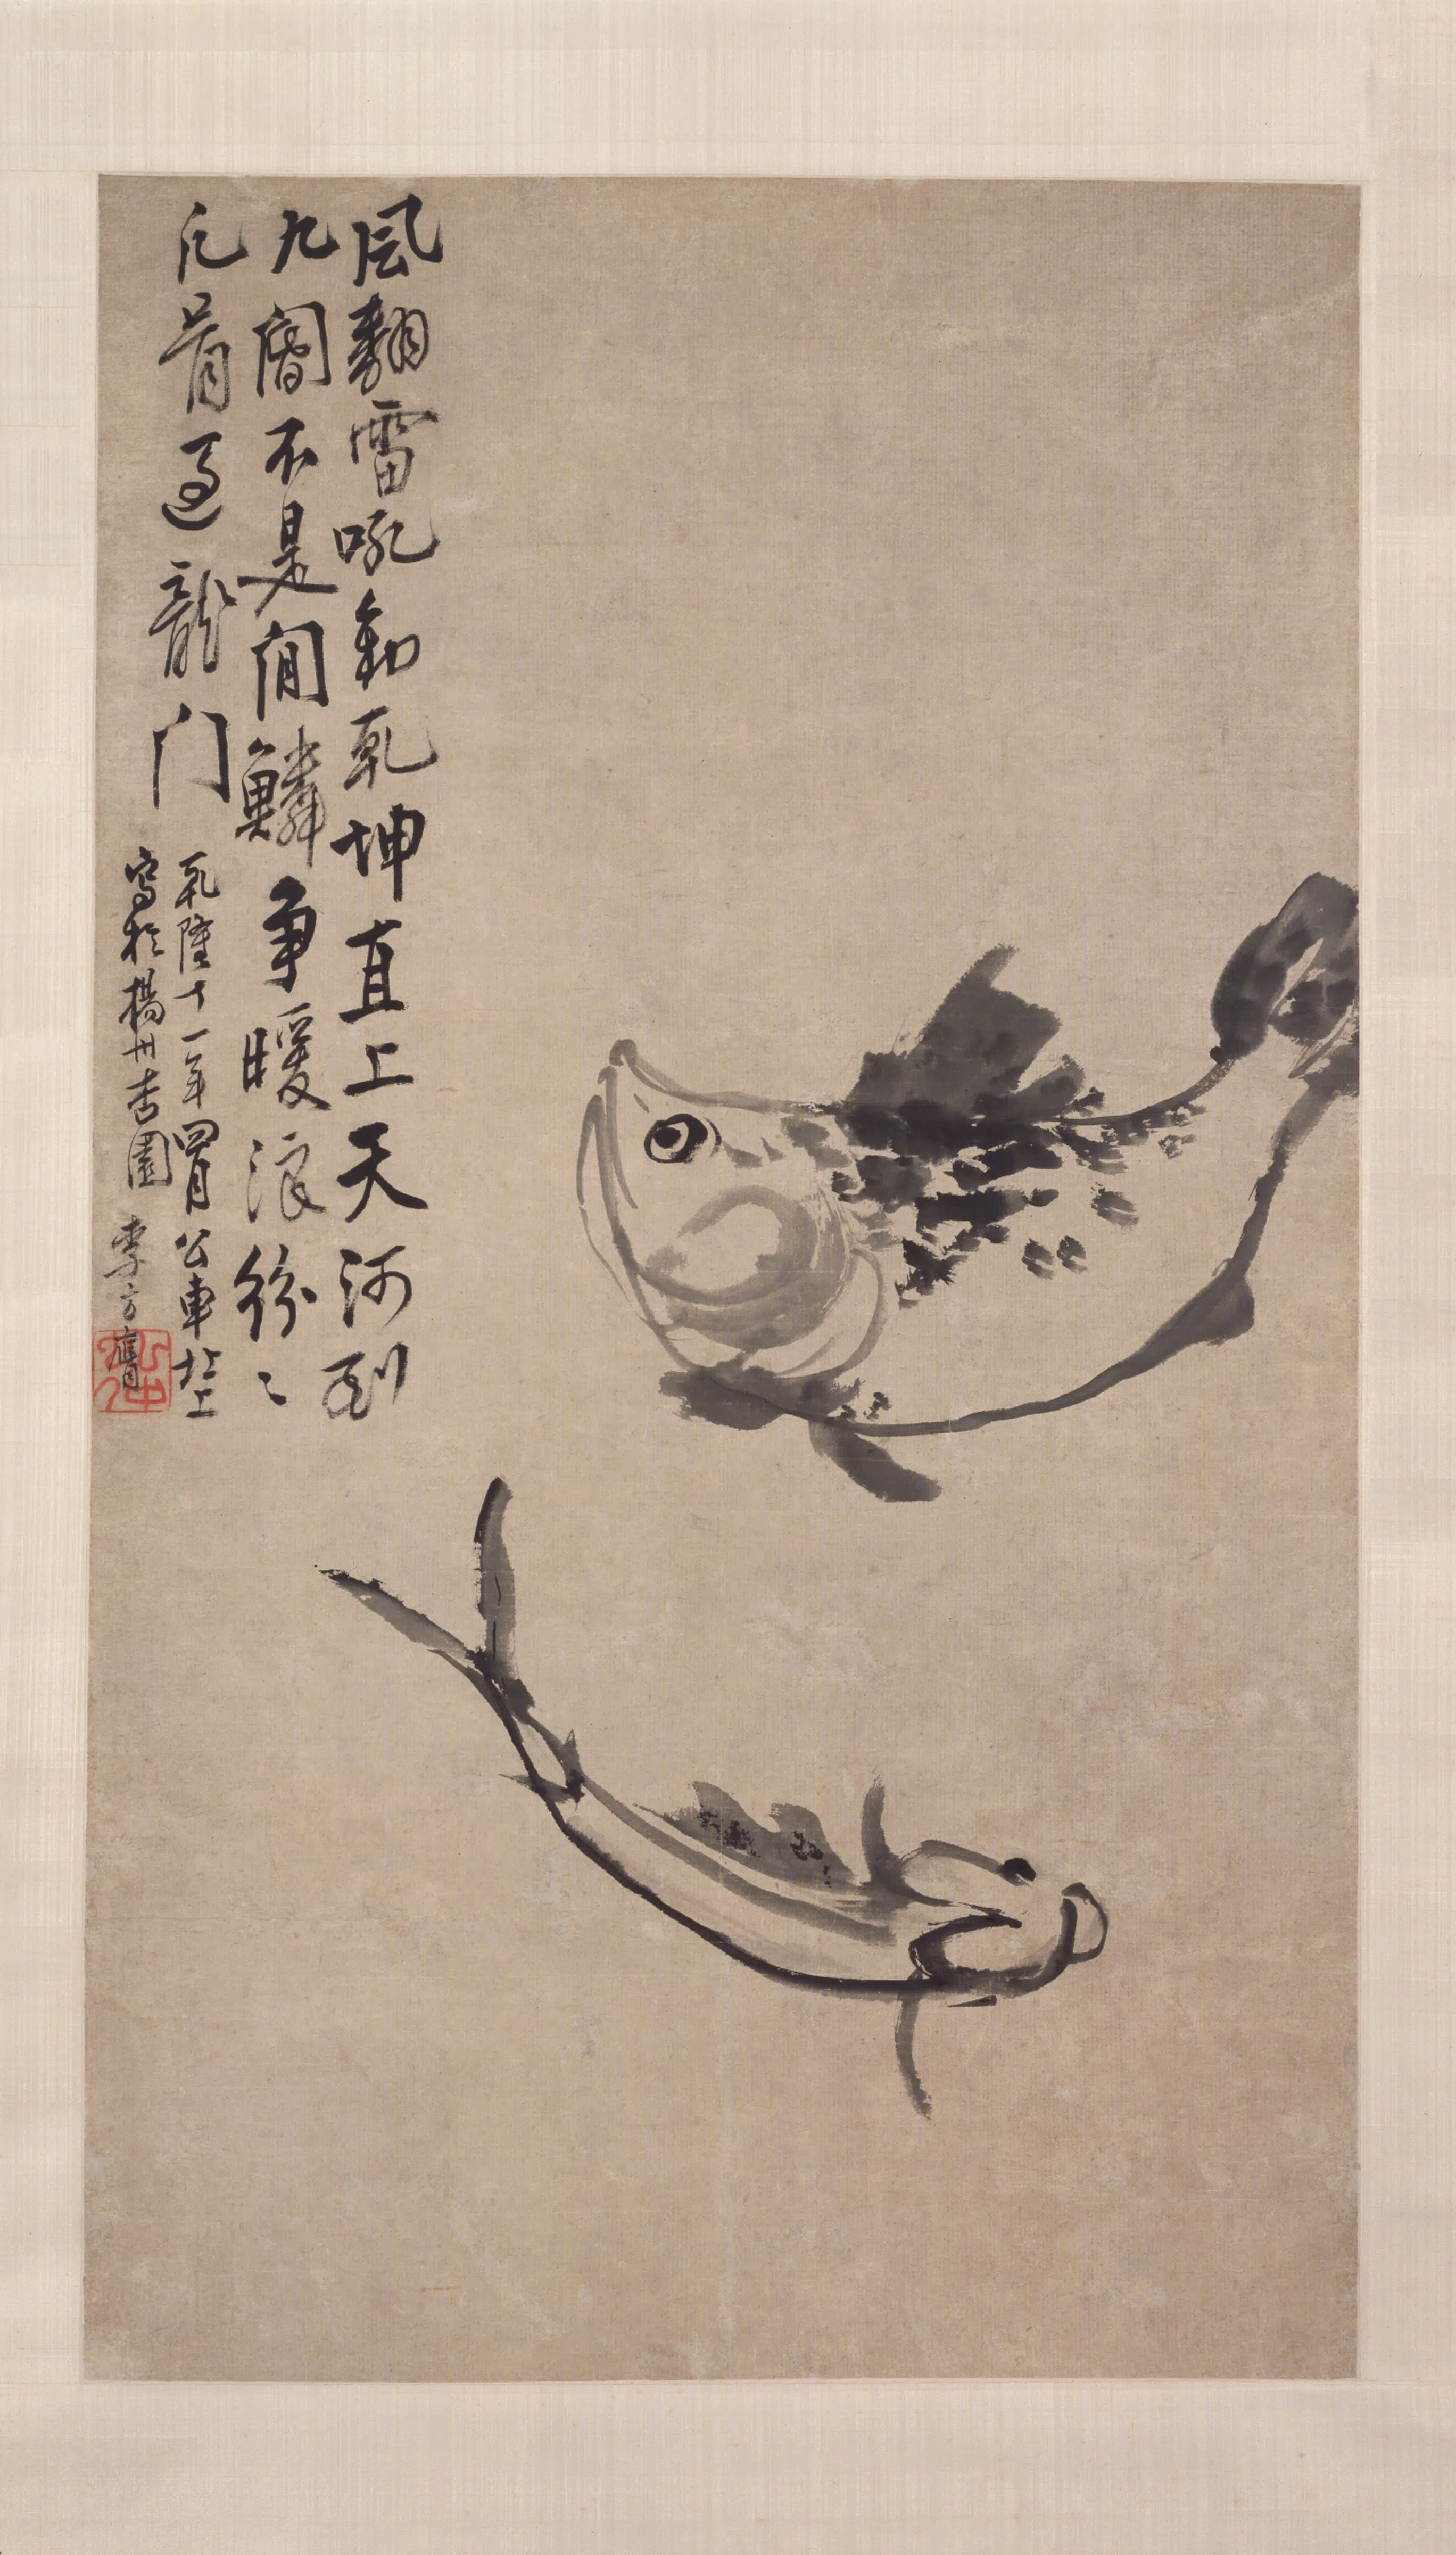 風翻雷吼動乾坤直上天河到
九閽不是閒鱗爭暖浪紛〻
凡骨過龍门
乾隆十一年四月公車北上
寫於楊州杏園 李方膺